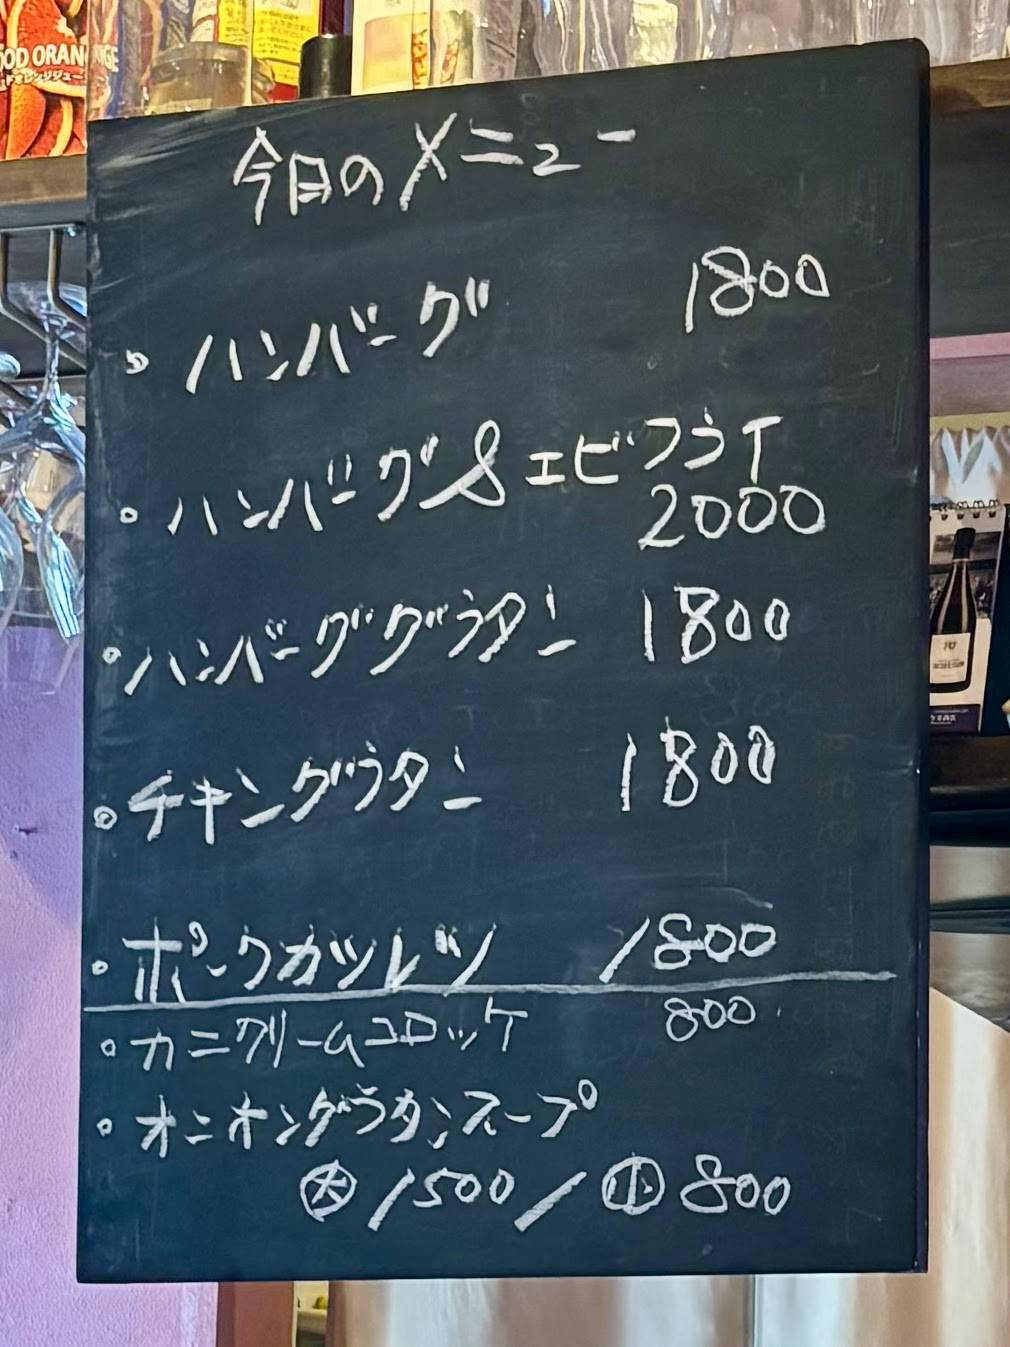 OOD ORANGE
今日のメニュー
・ハンバーグ 1800
・ハンバーグ&エビフライ
2000
・ハンバーググラタン 1800
・チキングラタン 1800
・ポークカツレツ 1800
・カニクリームコロッケ 800
・オニオングラタンスープ
㊅ 1500 / ㊉ 800